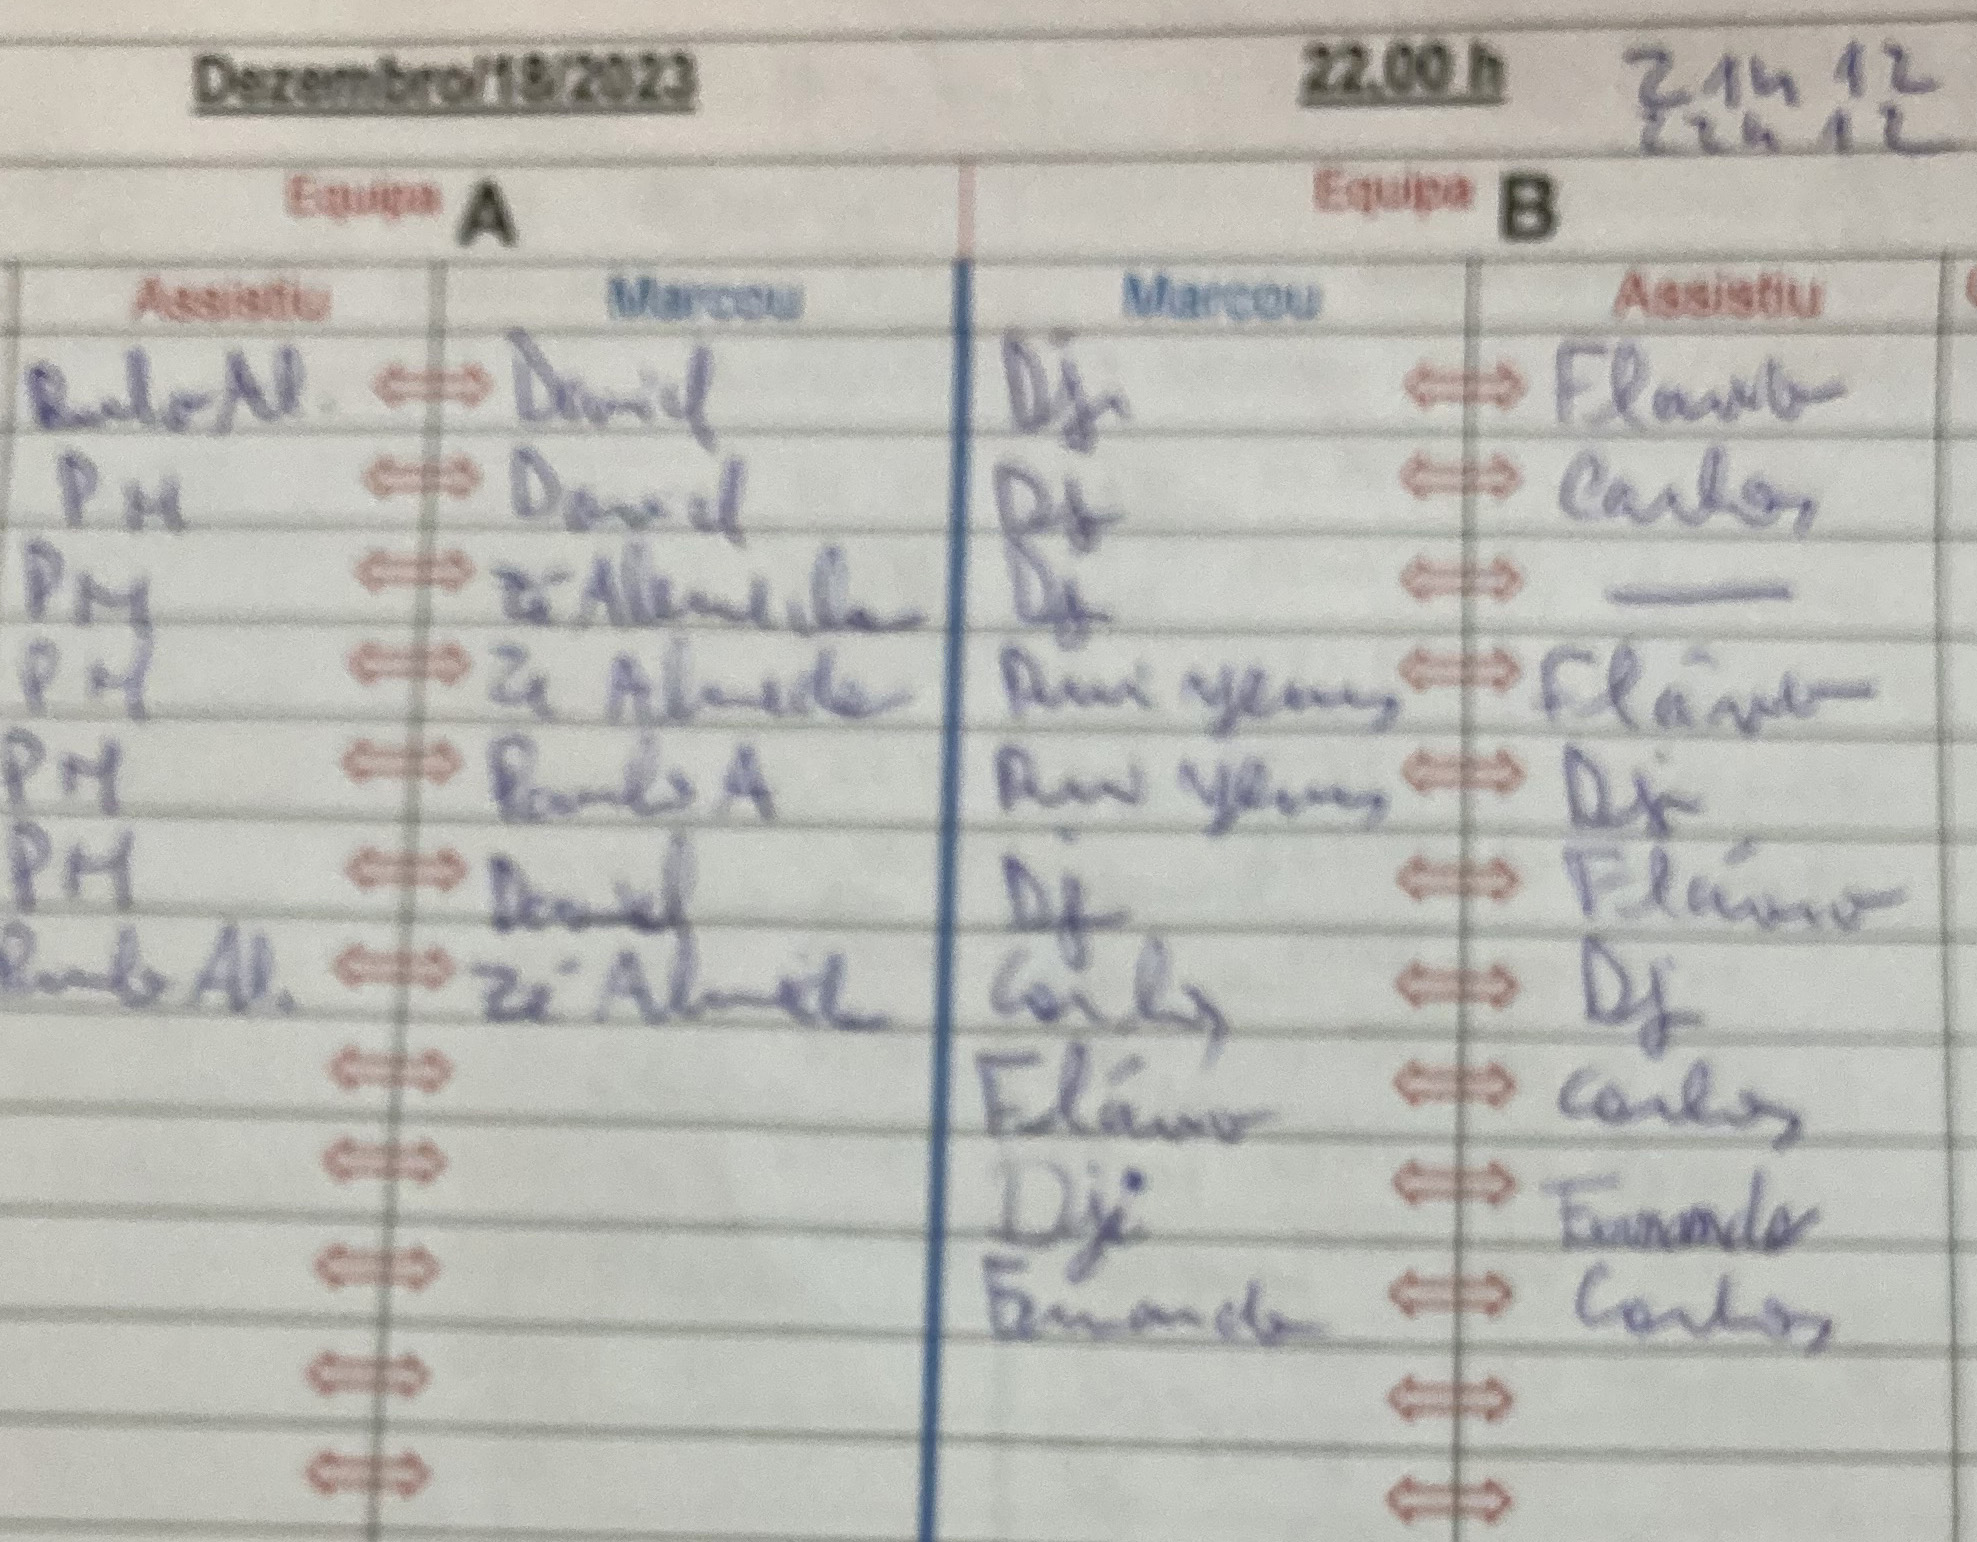 Dezembro/18/2023 22.00 h 21h 12
22h 12
Equipa A Equipa B
Assistiu Marcou Marcou Assistiu
Paulo Al. David Dji Flávio
PM David Dj Carlos
PM Zé Almeida Dj —
PM Zé Almeida Rui Flávio
PM Paulo A Rui Dj
PM David Dj Flávio
Paulo Al. Zé Almeida Carlos Dj
Flávio Carlos
Dji Fernando
Fernando Carlos